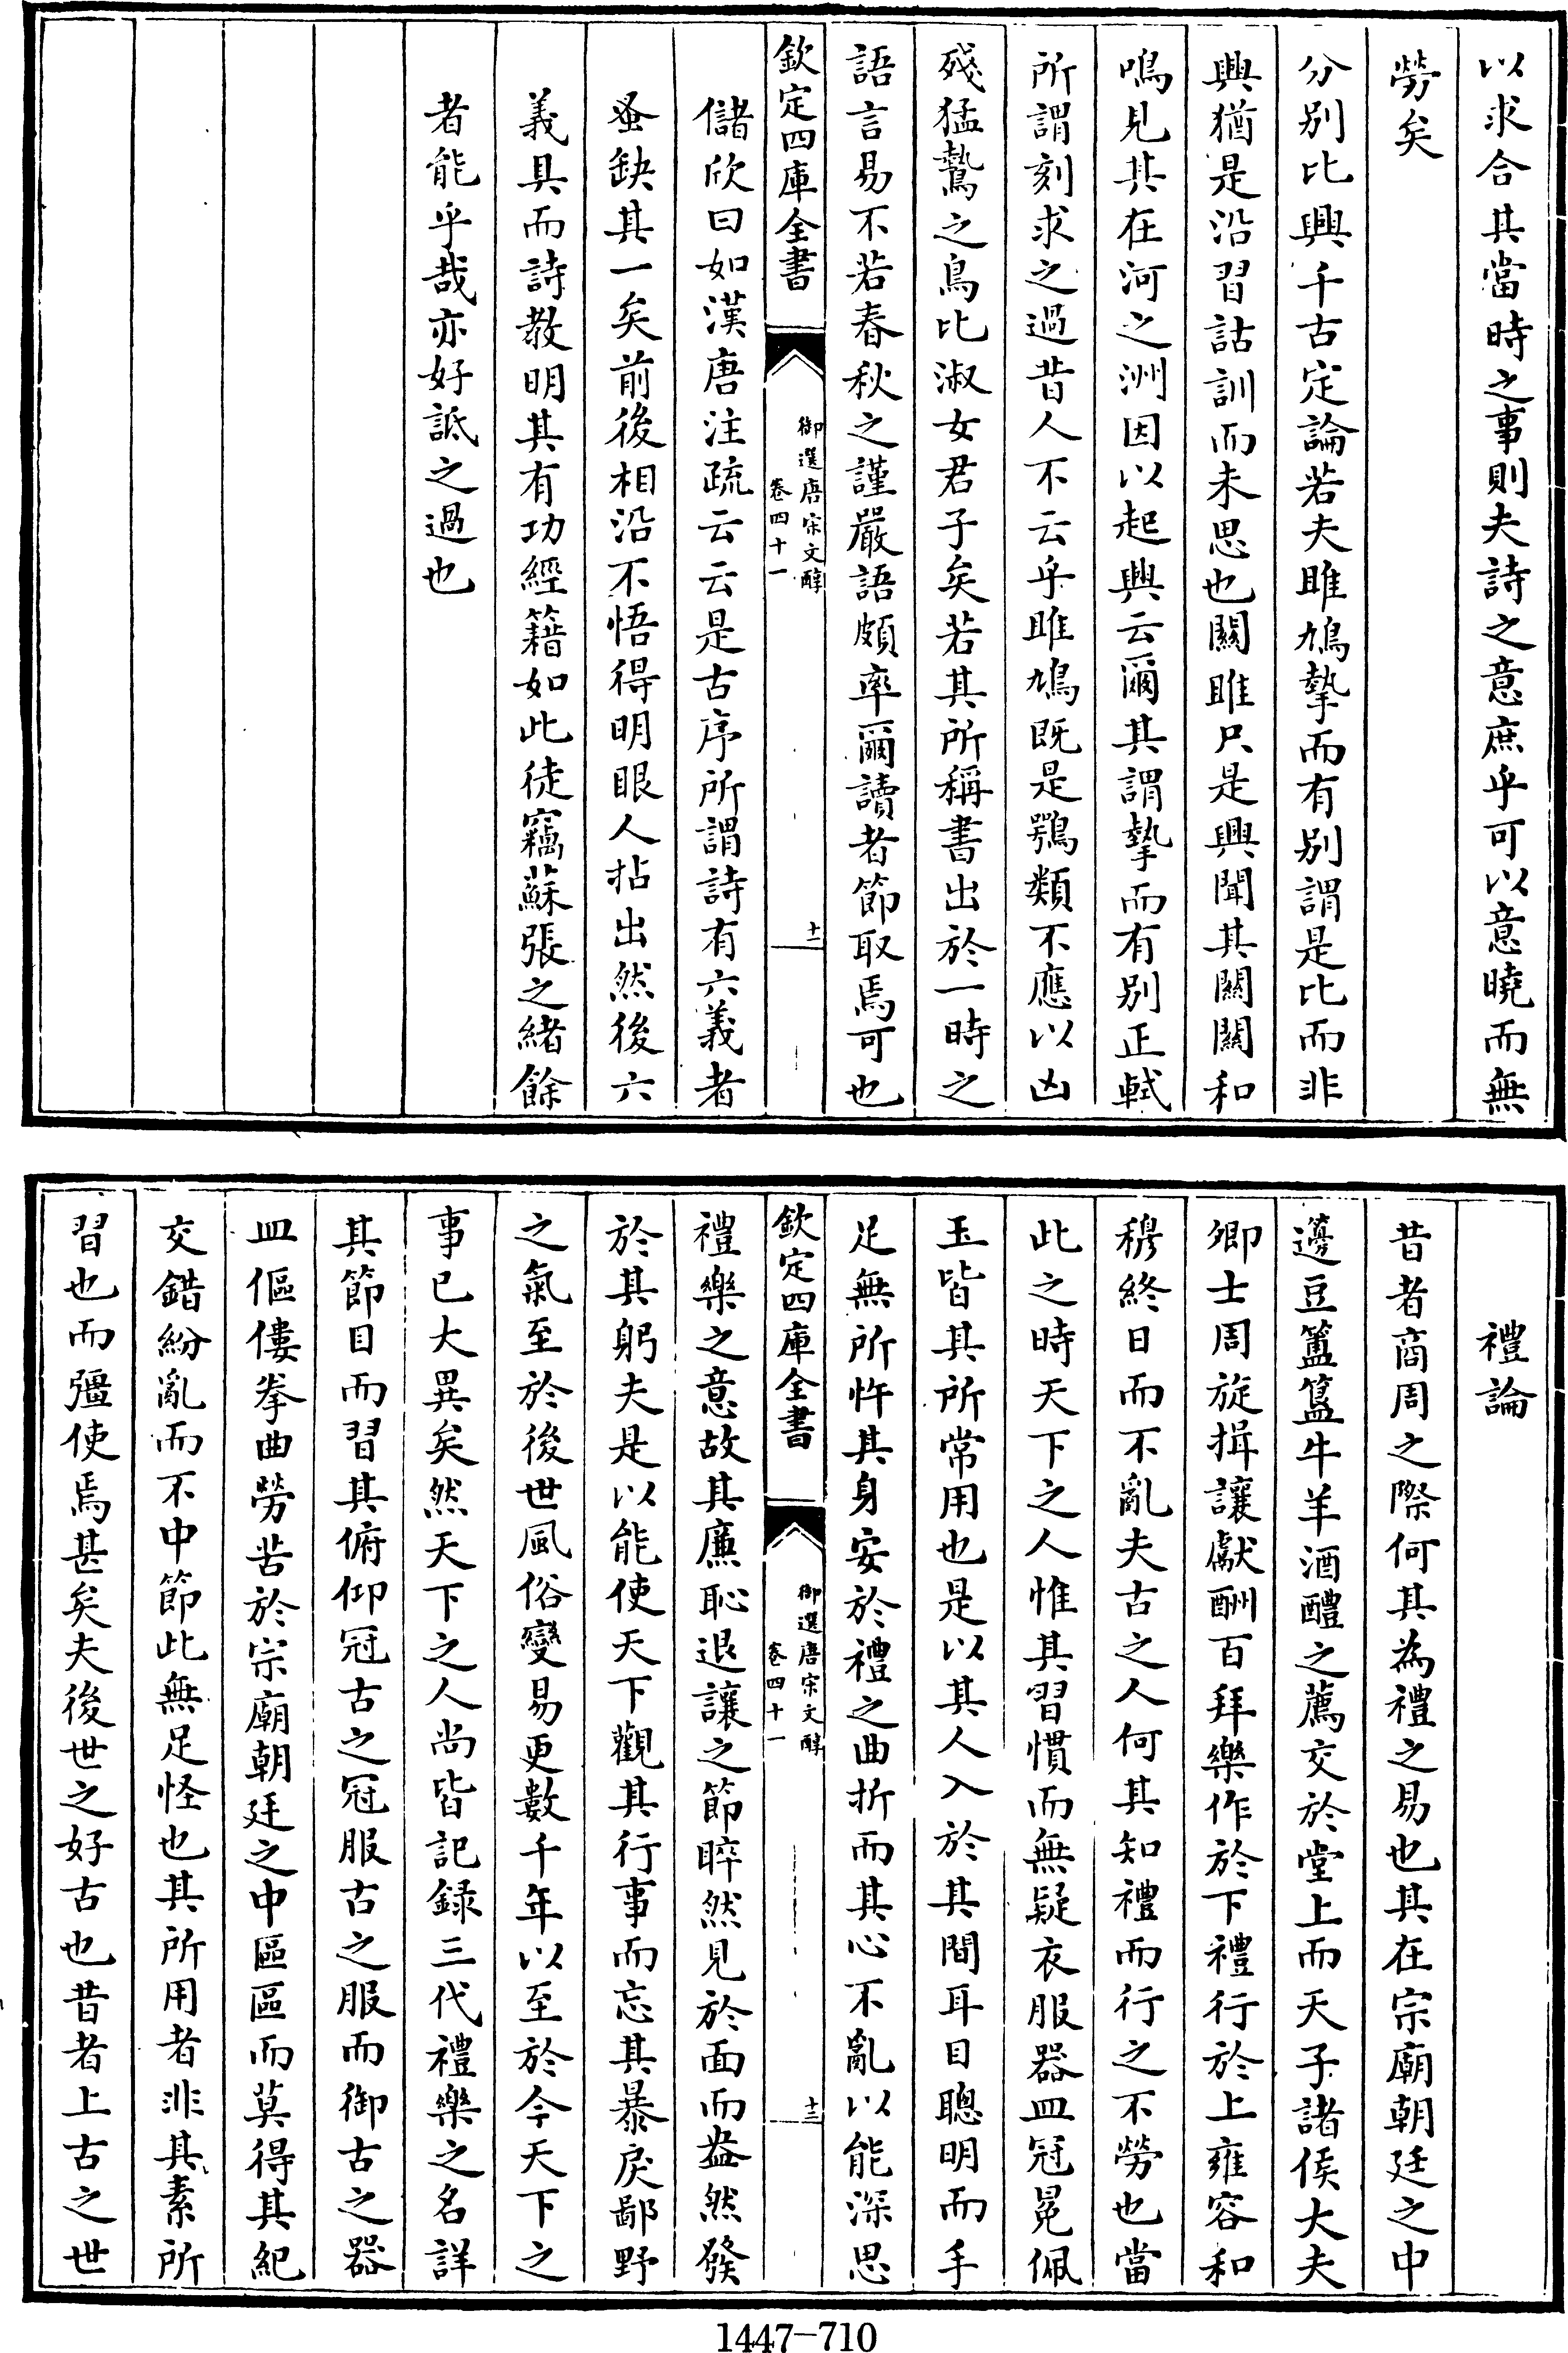 以求合其當時之事則夫詩之意庶乎可以意曉而無
勞矣
分别比興千古定論若夫雎鳩摯而有别謂是比而非
興猶是沿習詁訓而未思也關雎只是興聞其關關和
鳴見其在河之洲因以起興云爾其謂摯而有别正軾
所謂刻求之過昔人不云乎雎鳩既是鶚類不應以凶
殘猛鷙之鳥比淑女君子矣若其所稱書出於一時之
語言易不若春秋之謹嚴語頗率爾讀者節取焉可也
欽定四庫全書
御選唐宋文醇
卷四十一
十二
儲欣曰如漢唐注疏云云是古序所謂詩有六義者
蚤缺其一矣前後相沿不悟得明眼人拈出然後六
義具而詩教明其有功經籍如此徒竊蘇張之緒餘
者能乎哉亦好詆之過也
禮論
昔者商周之際何其為禮之易也其在宗廟朝廷之中
籩豆簠簋牛羊酒醴之薦交於堂上而天子諸侯大夫
卿士周旋揖讓獻酬百拜樂作於下禮行於上雍容和
穆終日而不亂夫古之人何其知禮而行之不勞也當
此之時天下之人惟其習慣而無疑衣服器皿冠冕佩
玉皆其所常用也是以其人入於其間耳目聰明而手
足無所忤其身安於禮之曲折而其心不亂以能深思
欽定四庫全書
御選唐宋文醇
卷四十一
十三
禮樂之意故其廉恥退讓之節睟然見於面而盎然發
於其躬夫是以能使天下觀其行事而忘其暴戾鄙野
之氣至於後世風俗變易更數千年以至於今天下之
事已大異矣然天下之人尚皆記録三代禮樂之名詳
其節目而習其俯仰冠古之冠服古之服而御古之器
皿傴僂拳曲勞苦於宗廟朝廷之中區區而莫得其紀
交錯紛亂而不中節此無足怪也其所用者非其素所
習也而彊使焉甚矣夫後世之好古也昔者上古之世
1447-710